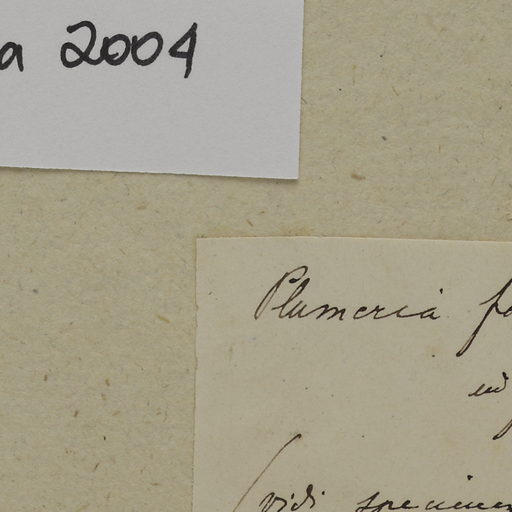 a 2004
Plumeria
(vidi specimen